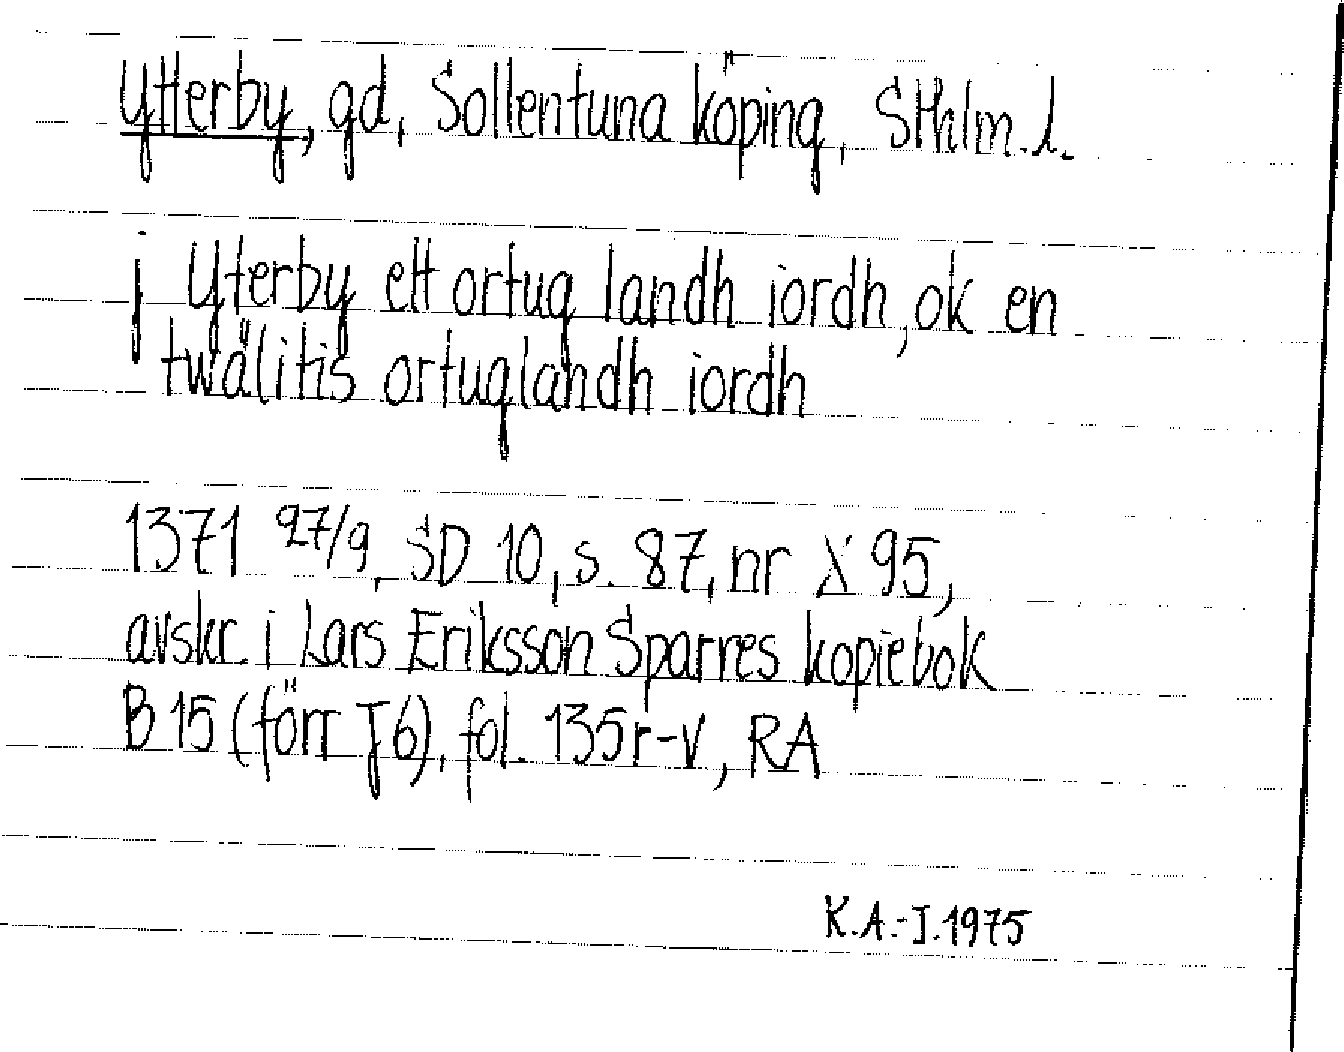 Ytterby, gd, Sollentuna köping, Sthlm.l.
j Yterby ett ortug landh iordh, ok en
twälitis ortuglandh iordh
1371 27/9, SD 10, s. 87, nr X 95,
avskr. i Lars Eriksson Sparres kopiebok
B 15 (förr J 6), fol. 135r-v, RA
K.A.-J.1975